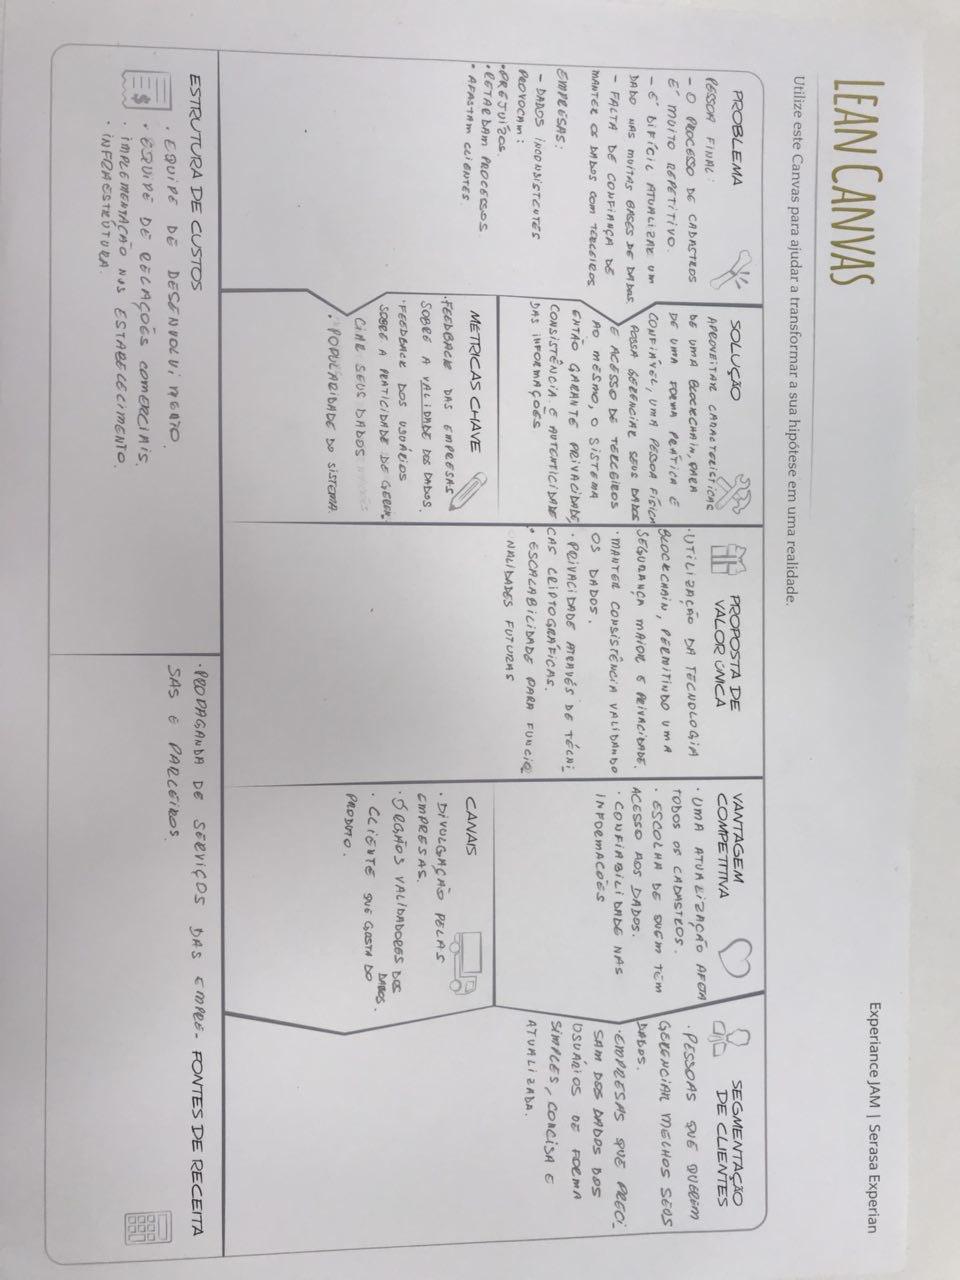 LEAN CANVAS
Utilize este Canvas para ajudar a transformar a sua hipótese em uma realidade.
Experiance JAM | Serasa Experian
PROBLEMA
PESSOA FINAL:
- O PROCESSO DE CADASTROS
É MUITO REPETITIVO.
- É DIFÍCIL ATUALIZAR UM
DADO NAS MUITAS BASES DE DADOS
- FALTA DE CONFIANÇA DE
MANTER OS DADOS COM TERCEIROS
EMPRESAS:
- DADOS INCONSISTENTES
PROVOCAM:
• PREJUÍZOS.
• RETARDAM PROCESSOS
• AFASTAM CLIENTES
SOLUÇÃO
APROVEITAR CARACTERÍSTICAS
DE UMA BLOCKCHAIN, PARA
DE UMA FORMA PRÁTICA E
CONFIÁVEL, UMA PESSOA FÍSICA
POSSA GERENCIAR SEUS DADOS
E ACESSO DE TERCEIROS
AO MESMO, O SISTEMA
ENTÃO GARANTE PRIVACIDADE,
CONSISTÊNCIA E AUTENTICIDADE
DAS INFORMAÇÕES
METRICAS CHAVE
• FEEDBACK DAS EMPRESAS
SOBRE A VALIDADE DOS DADOS.
• FEEDBACK DOS USUÁRIOS
SOBRE A PRATICIDADE DE GEREN
CIAR SEUS DADOS
• POPULARIDADE DO SISTEMA.
PROPOSTA DE
VALOR ÚNICA
• UTILIZAÇÃO DA TECNOLOGIA
BLOCKCHAIN, PERMITINDO UMA
SEGURANÇA MAIOR E PRIVACIDADE.
• MANTER CONSISTÊNCIA VALIDANDO
OS DADOS.
• PRIVACIDADE ATRAVÉS DE TÉCNI
CAS CRIPTOGRÁFICAS.
• ESCALABILIDADE PARA FUNCIO
NALIDADES FUTURAS
VANTAGEM
COMPETITIVA
• UMA ATUALIZAÇÃO AFETA
TODOS OS CADASTROS.
• ESCOLHA DE QUEM TÊM
ACESSO AOS DADOS.
• CONFIABILIDADE NAS
INFORMAÇÕES
CANAIS
• DIVULGAÇÃO PELAS
EMPRESAS.
• ÓRGÃOS VALIDADORES DOS
DADOS.
• CLIENTE QUE GOSTA DO
PRODUTO.
SEGMENTAÇÃO
DE CLIENTES
• PESSOAS QUE QUEREM
GERENCIAR MELHOS SEUS
DADOS.
• EMPRESAS QUE PRECI
SAM DOS DADOS DOS
USUÁRIOS DE FORMA
SIMPLES, CONCISA E
ATUALIZADA.
ESTRUTURA DE CUSTOS
• EQUIPE DE DESENVOLVIMENTO
• EQUIPE DE RELAÇÕES COMERCIAIS.
• IMPLEMENTAÇÃO NOS ESTABELECIMENTO.
• INFRAESTRUTURA.
FONTES DE RECEITA
• PROPAGANDA DE SERVIÇOS DAS EMPRE-
SAS E PARCEIROS.